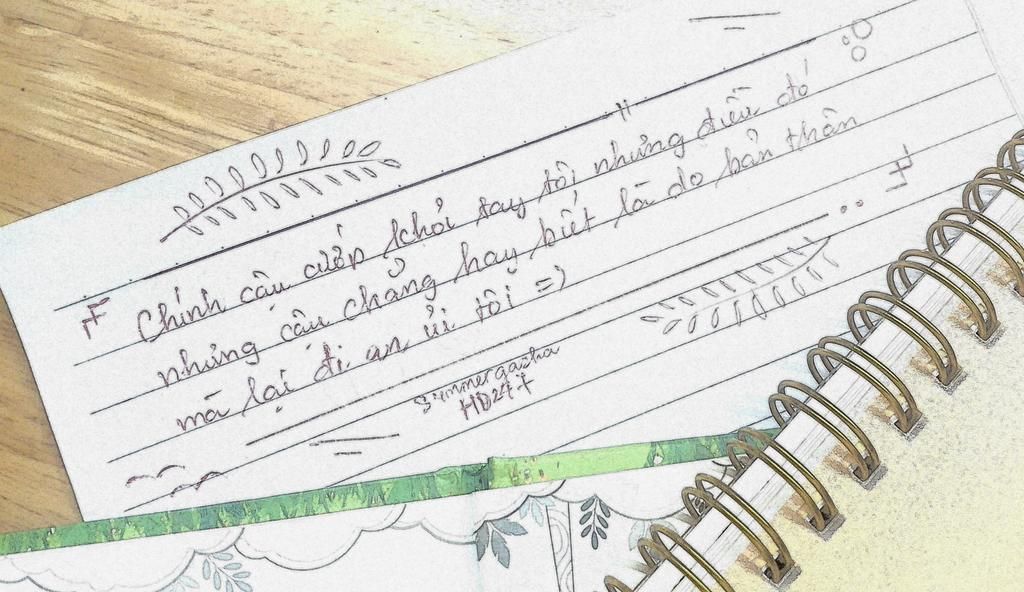 Chính cậu cướp khỏi tay tôi những điều đó
nhưng cậu chẳng hay biết là do bản thân
mà lại đi an ủi tôi =)
Summer gacha
HD24+